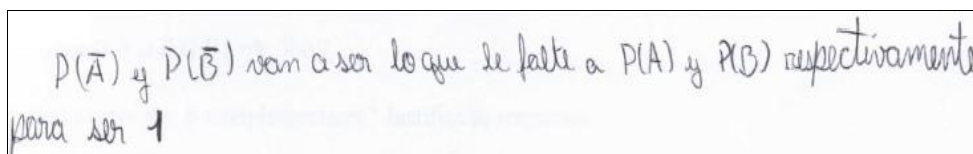 P(Ā) y P(B̄) van a ser lo que le falte a P(A) y P(B) respectivamente
para ser 1